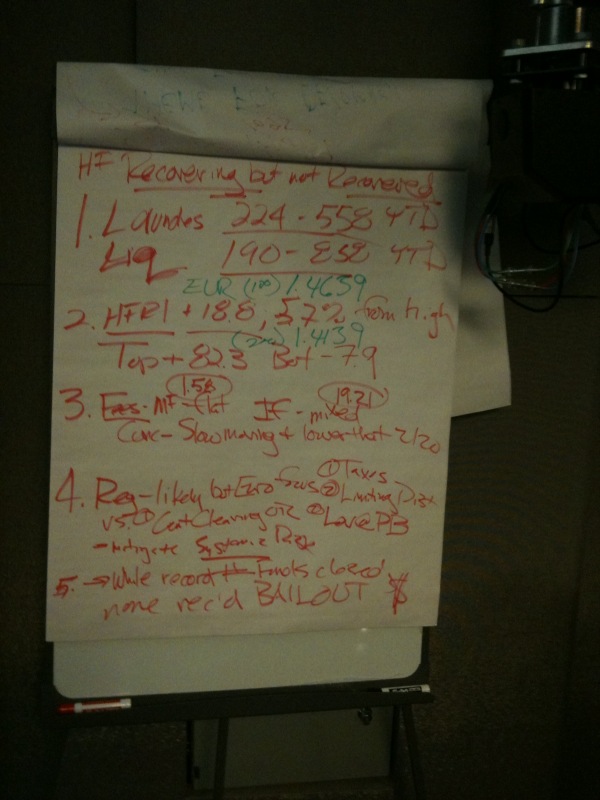 HF Recovering but not Recovered
1. Laundes 224 - 558 YTD
Liq 190 - 858 YTD
EUR (100) 1.4639
2. HFRI + 18.8, 5.7% from high
(200) 1.4139
Top + 82.3 Bot - 7.9
1.58 19.21
3. Fees - MF - flat IF - mixed
Curr - Slow moving + lower that 2/20
4. Reg - likely but Euro focus ① Taxes
② Limiting Dist
vs. ① Cent Clearing OTC PB
- mitigate Systemic Risk
5. → While record # Funds closed
none rec'd BAILOUT $